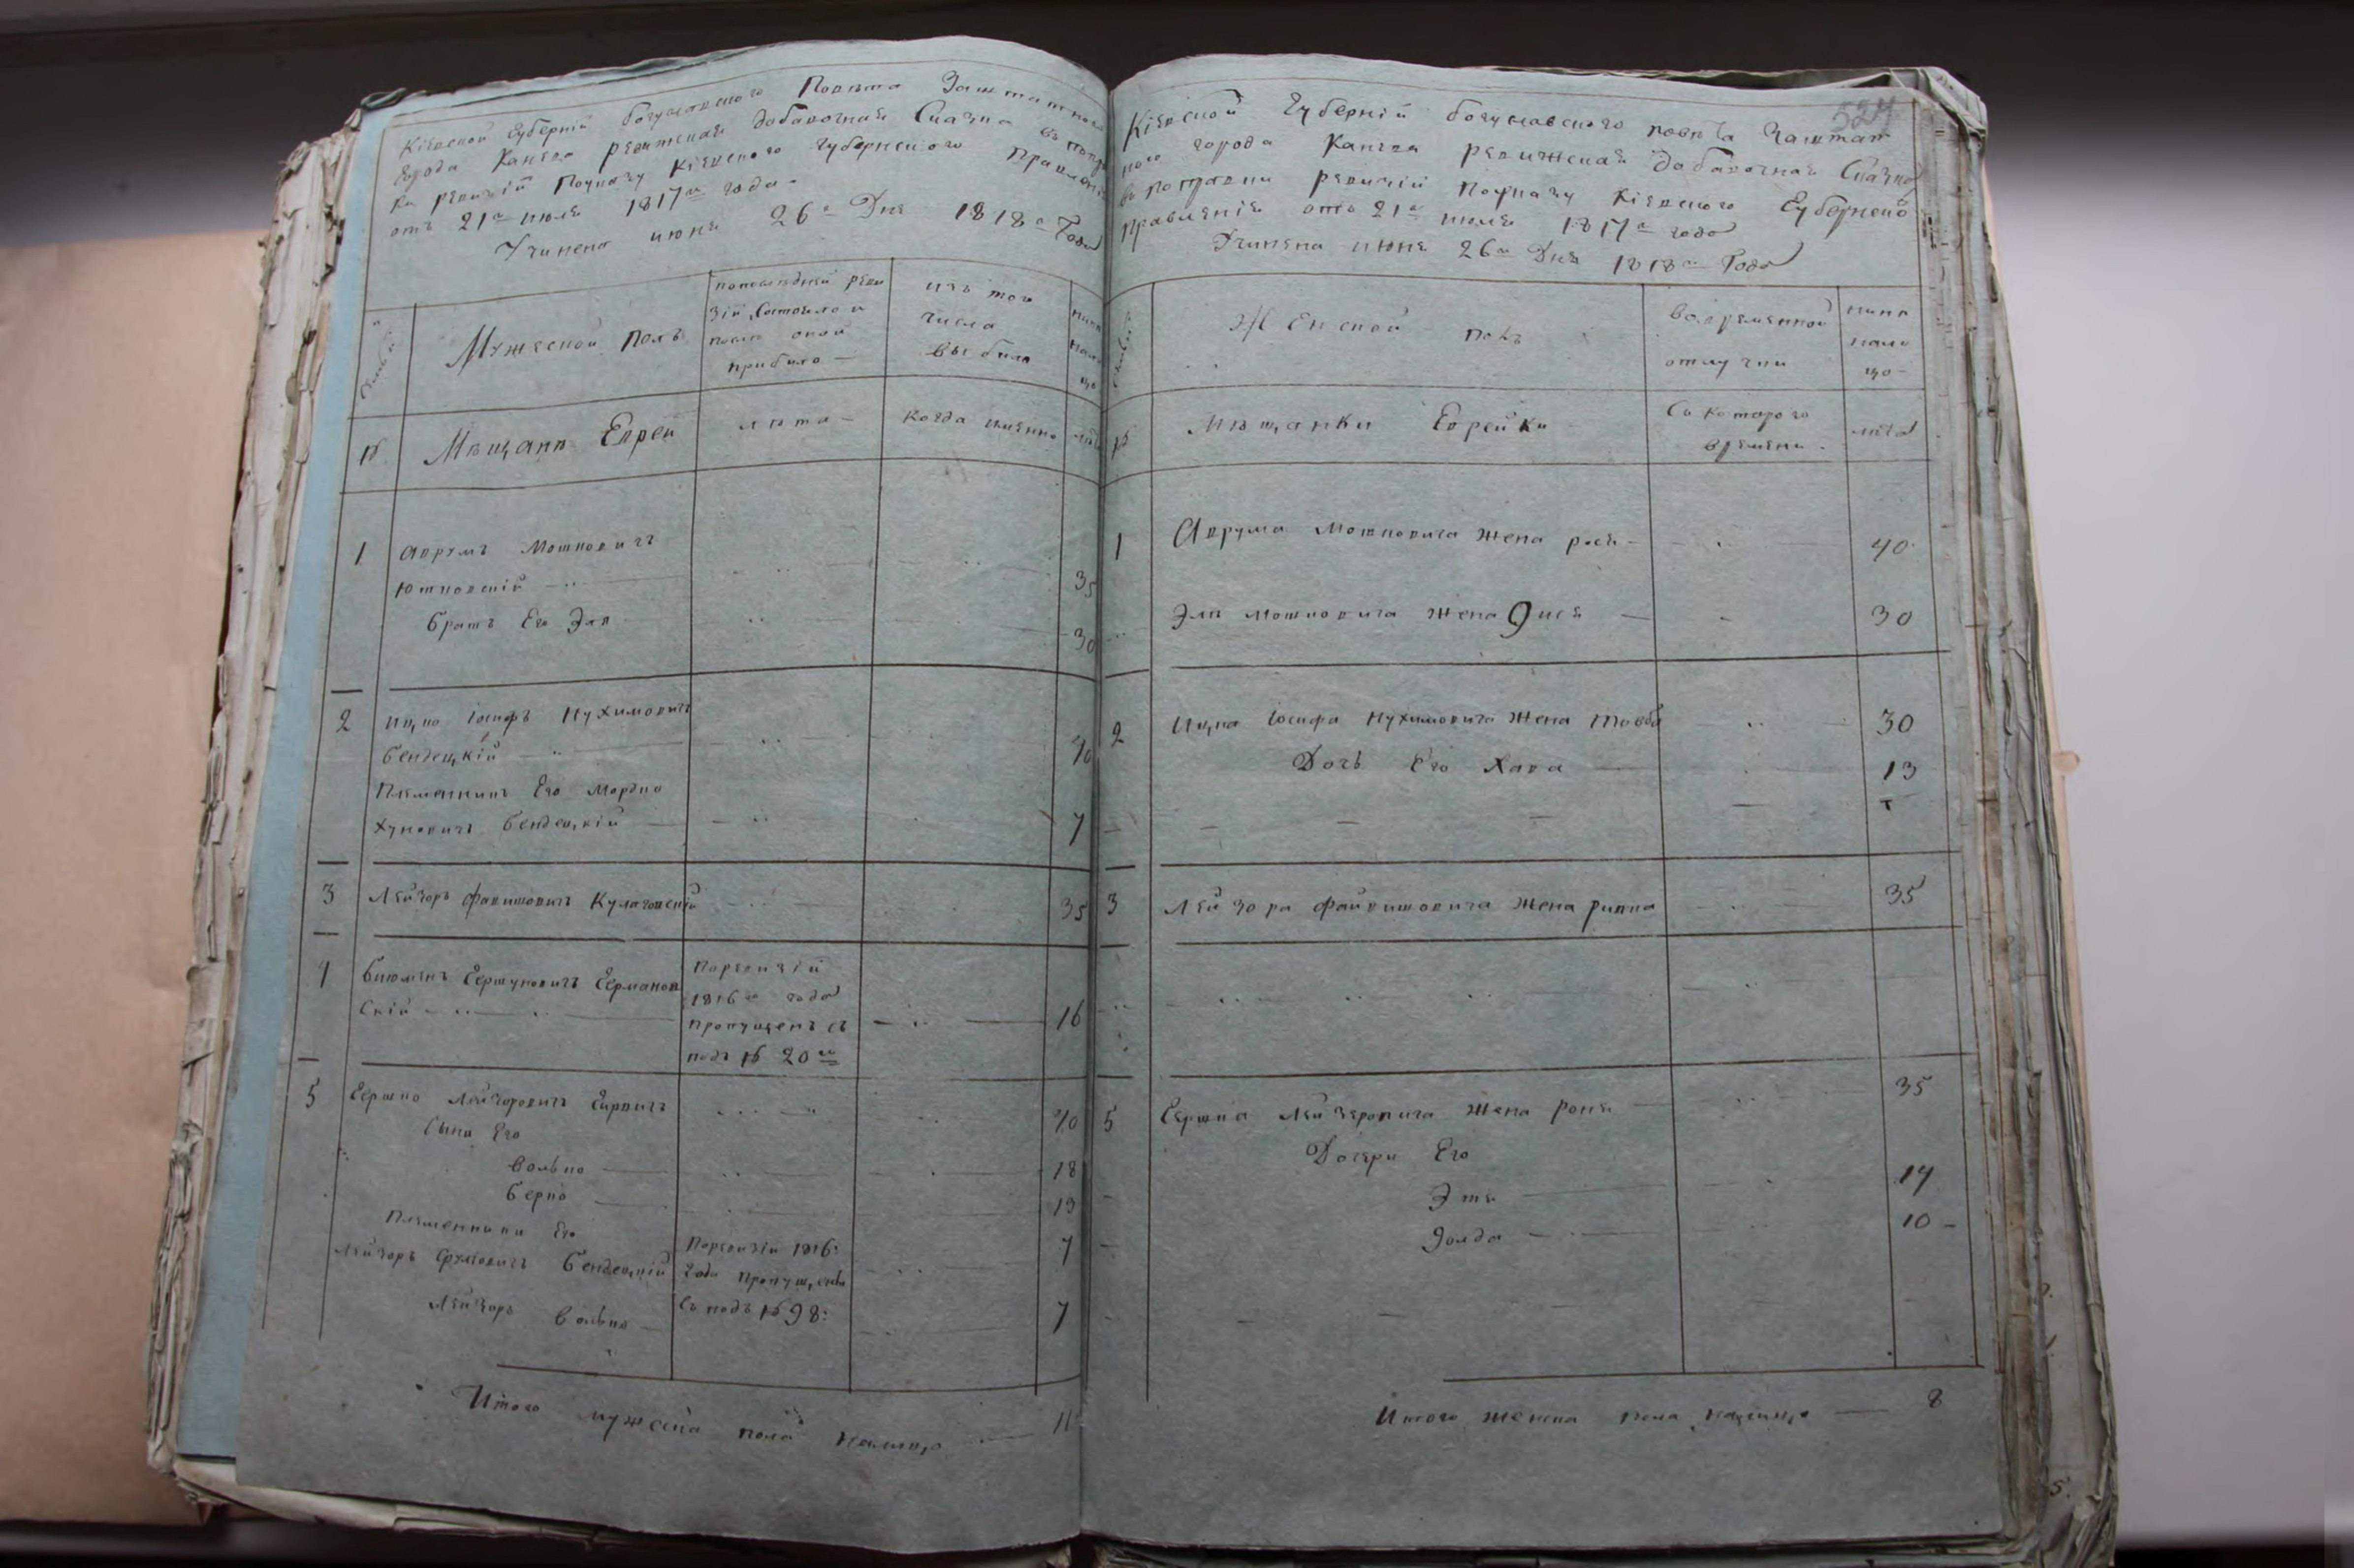 Кіевской Губерніи Богуславского Повѣта Заштатного
Города Канева ревижская добавочная Сказка въ попра
ки ревизіи Поуказу Кіевского Губернского Правленія
отъ 21го июля 1817го года.
Учинена июня 26го Дня 1818го Года
Мужеской Полъ
попослѣдней реви
зіи состояло и
послѣ оной
прибыло —
изъ того
числа
выбыло
нынѣ
нали
цо
№
Мѣщанѣ Евреи
лѣта —
когда именно
лѣта
1 Аврумъ Мошковичъ
Ютковскій — 35
Братъ Его Эля 30
2 Ицко Іосифъ Нухимовичъ
Бендецкій — 40
Племенникъ Его Мордко
Хуновичъ Бендецкій — 7
3 Лейзоръ Фавишовичъ Кулаговскій 35
4 Беюменъ Гершуновичъ Германов
скій — 16
Поревизіи
1816го года
пропущенъ съ
подъ № 20го
5 Гершко Лейзоровичъ Гирвичъ 40
Сыни Его
Волько — 18
Берко — 13
Племенники Его
Лейзоръ Сруліовичъ Бендецкій 7
Поревизіи 1816:
Года пропущены
Съ подъ № 98:
Лейзоръ Волько — 7
Итого мужеска пола налицо — 11
524
Кіевской Губерніи Богуславского повѣта Заштат
ного города Канева ревижская добавочная Сказка
въ поправки ревизіи Поуказу Кіевского Губернско
Правленія отъ 21го июля 1817го года
Учинена июня 26го Дня 1818го Года
Женской полъ
Вовременной
отлучки
нынѣ
нали
цо —
№
Мѣщанки Еврейки
Съ которого
времени.
лѣта
1 Аврума Мошковича Жена рося — 40
Эли Мошковича Жена Эися — 30
2 Ицка Іосифа Нухимовича Жена Товба 30
Дочь Его Хава 13
3 Лейзора Файвишовича Жена ривка 35
5 Гершка Лейзеровича Жена роня 35
Дочери Его
Этя 14
Голда 10 —
Итого женска пола налицо — 8